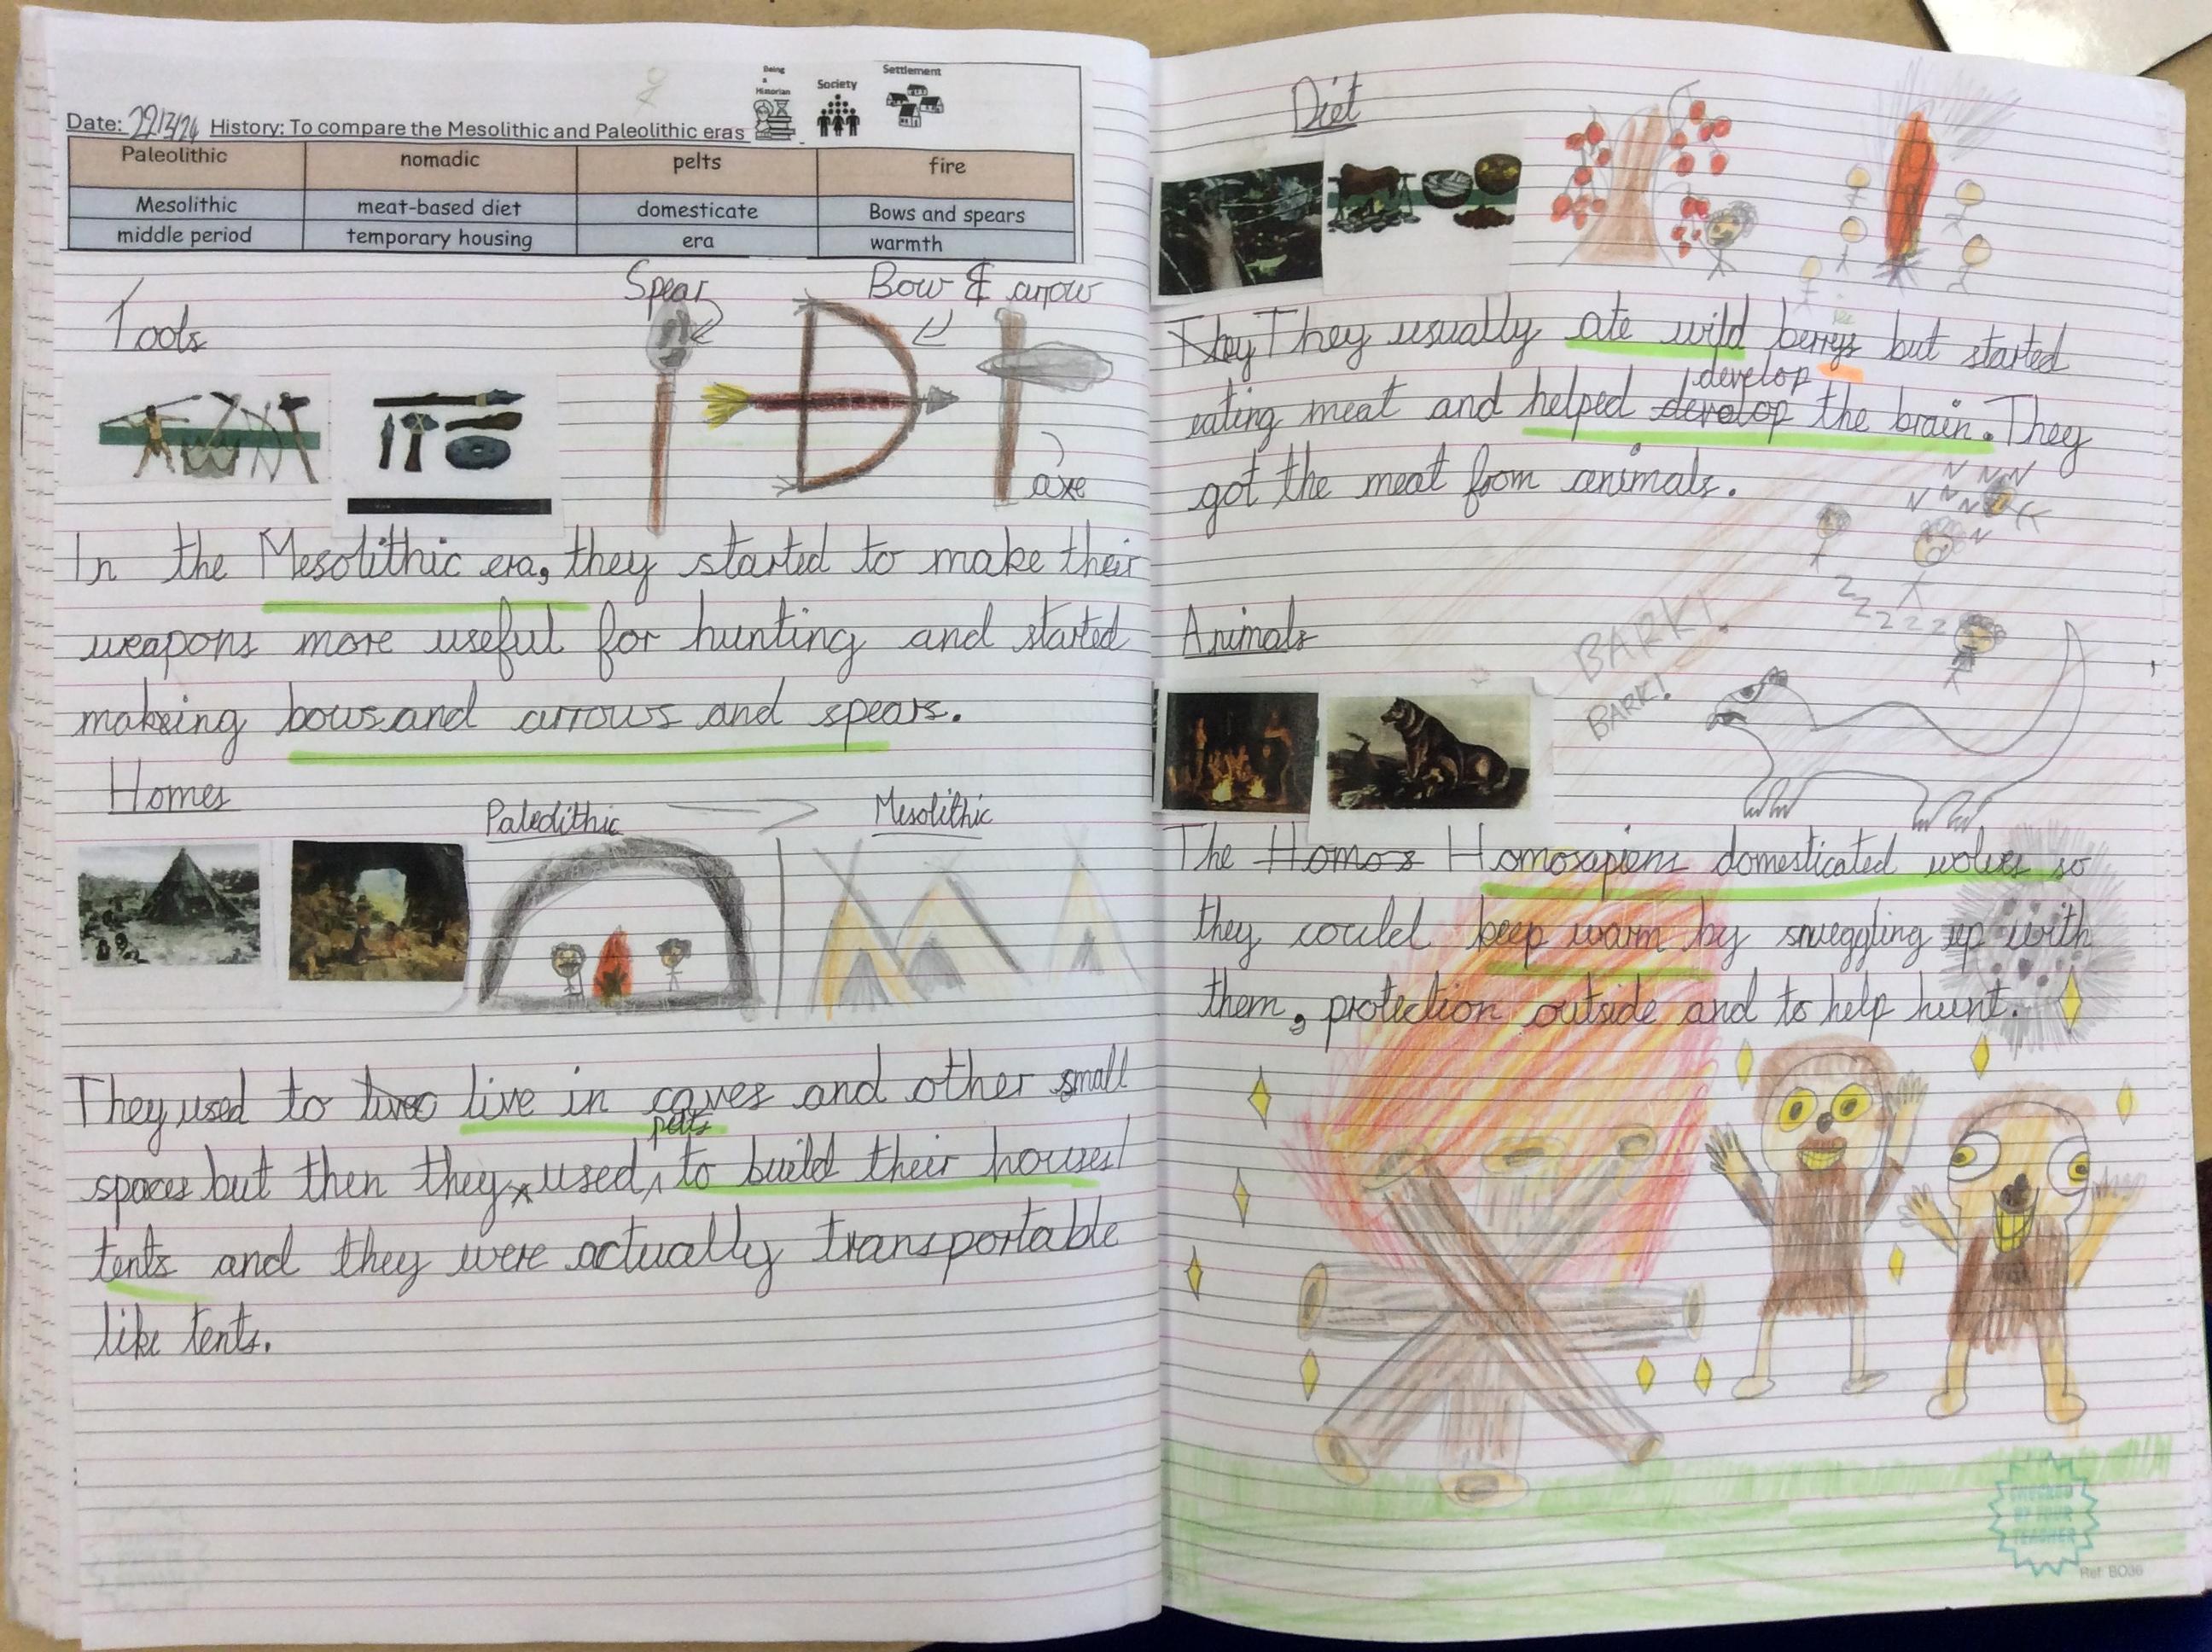 Being
a
Historian
Society
Settlement
Date: 22/3/24 History: To compare the Mesolithic and Paleolithic eras
Paleolithic nomadic pelts fire
Mesolithic meat-based diet domesticate Bows and spears
middle period temporary housing era warmth
Tools
Spear
Bow & arrow
axe
In the Mesolithic era, they started to make their
weapons more useful for hunting and started
makeing bows and arrows and spears.
Homes
Paleolithic
Mesolithic
They used to live in caves and other small
pelts
spaces but then they used to build their houses/
tents and they were actually transportable
like tents.
Diet
They They usually ate wild berrys but started
develop
eating meat and helped develop the brain. They
got the meat from animals.
N N N N
N N
N
Z Z Z Z Z Z
Animals
BARK!
BARK!
The Homos Homosapiens domesticated wolves so
they could keep warm by snuggling up with
them, protection outside and to help hunt.
CHECKED
BY YOUR
TEACHER
Ref: BO36